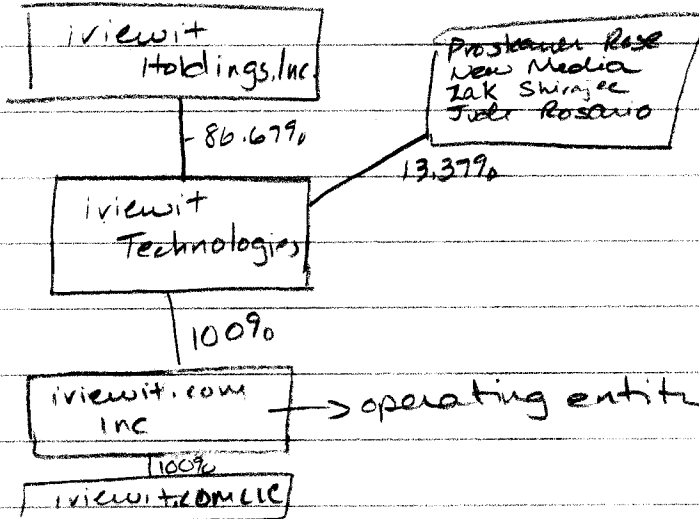 iviewit
Holdings, Inc.
Proskauer Rose
New Media
Zak Shirajee
Jude Rosario
86.67%
13.37%
iviewit
Technologies
100%
iviewit.com
Inc
operating entity
100%
iviewit.COM LLC